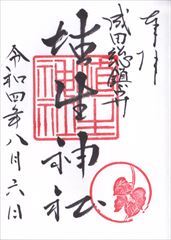 奉拝
成田総鎮守
埴生神社
令和四年八月六日